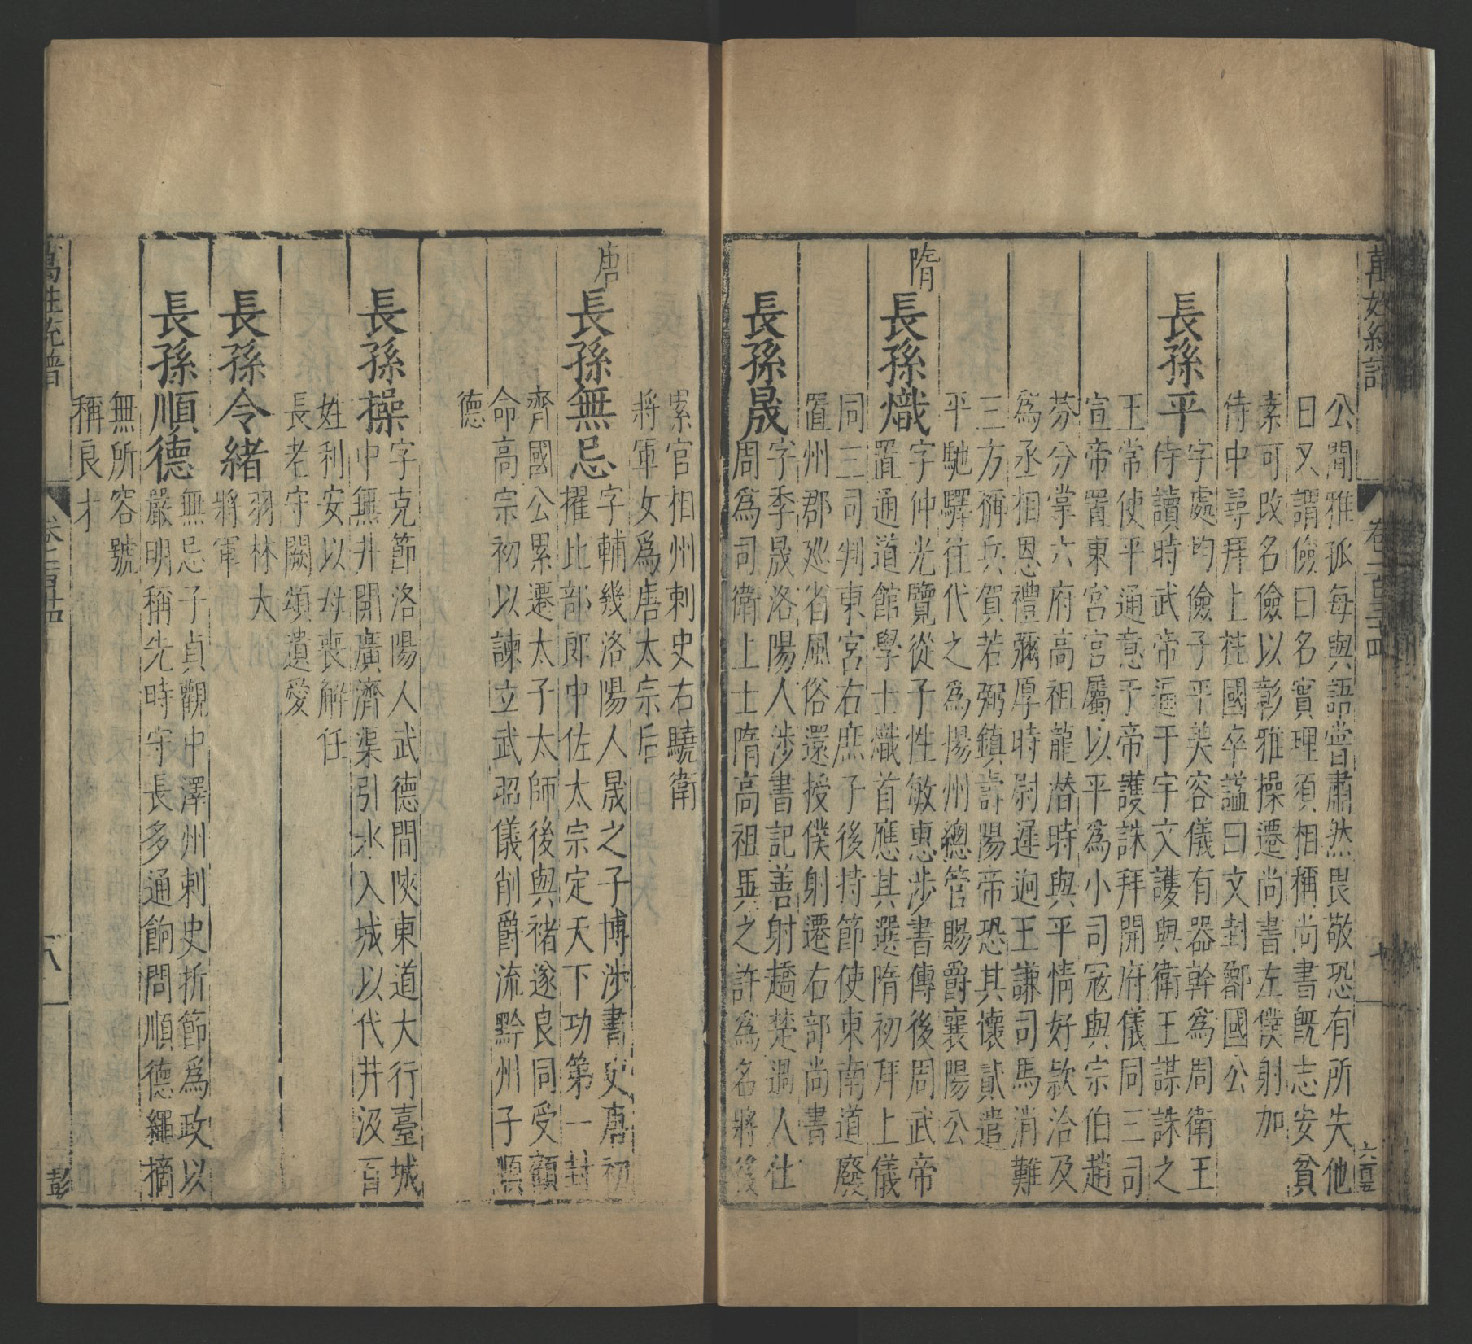 公閒雅孤每與語嘗肅然畏敬恐有所失他
日又謂儉曰名實理須相稱尚書既志安貧
素可改名儉以彰雅操遷尚書左僕射加
侍中尋拜上柱國卒謚曰文封鄶國公
長孫平
字處均儉子平美容儀有器幹為周衛王
侍讀時武帝逼于宇文護與衛王謀誅之
王常使平通意于帝護誅拜開府儀同三司
宣帝置東宮官屬以平為小司冦與宗伯趙
芬分掌六府高祖龍潛時與平情好欵洽及
為丞相恩禮彌厚時尉遲迥王謙司馬消難
三方稱兵賀若弼鎮壽陽帝恐其懷貳遣
平馳驛往代之為揚州總管賜爵襄陽公
隋
長孫熾
字仲光覽從子性敏惠涉書傳後周武帝
置通道館學士熾首應其選隋初拜上儀
同三司判東宮右庶子後持節使東南道廢
置州郡巡省風俗還授僕射遷右部尚書
長孫晟
字季晟洛陽人涉書記善射趫楚過人仕
周為司衛上士隋高祖異之許為名將後
累官相州刺史右驍衛
將軍女為唐太宗后
唐
長孫無忌
字輔幾洛陽人晟之子博涉書史唐初
擢比部郎中佐太宗定天下功第一封
齊國公累遷太子太師後與褚遂良同受顧
命高宗初以諫立武昭儀削爵流黔州子順
德
長孫操
字克節洛陽人武德間陜東道大行臺城
中無井開廣濟渠引水入城以代井汲百
姓利安以母喪解任
長老守闕頌遺愛
長孫令緒
羽林大
將軍
長孫順德
無忌子貞觀中澤州刺史折節為政以
嚴明稱先時守長多通餉問順德繩摘
無所容號
稱良才
萬姓統譜
卷一百三十四